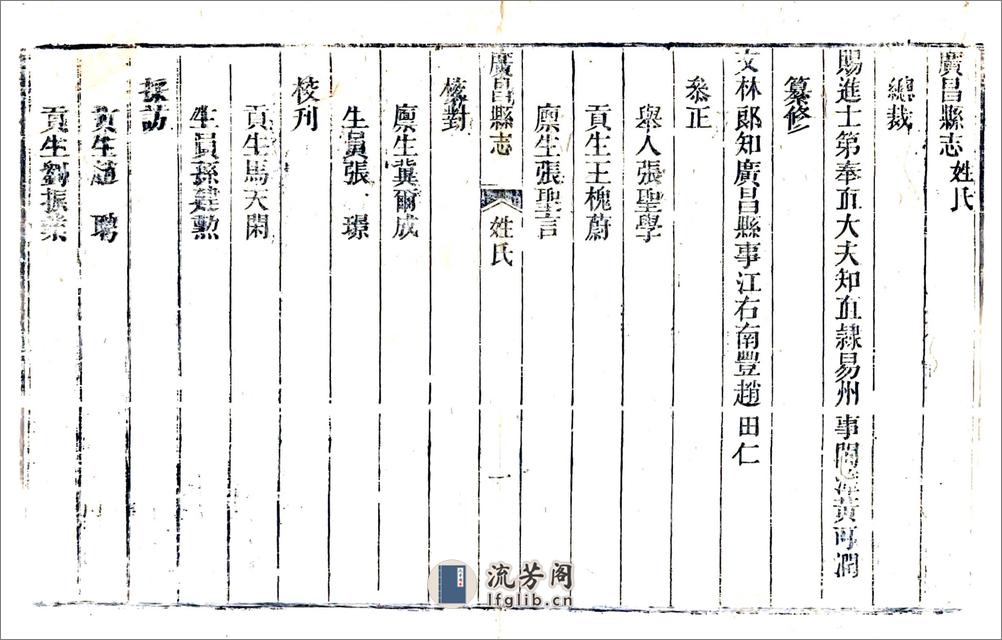 廣昌縣志 姓氏
總裁
賜進士第奉直大夫知直隸易州事閩漳黃可潤
纂修
文林郎知廣昌縣事江右南豐趙田仁
叅正
舉人張聖學
貢生王槐蔚
廪生張聖言
廣昌縣志 姓氏 一
校對
廪生冀爾成
生員張璟
校刊
貢生馬天閑
生員孫建勲
採訪
貢生趙聘
貢生劉振業
流芳阁
lfglib.cn